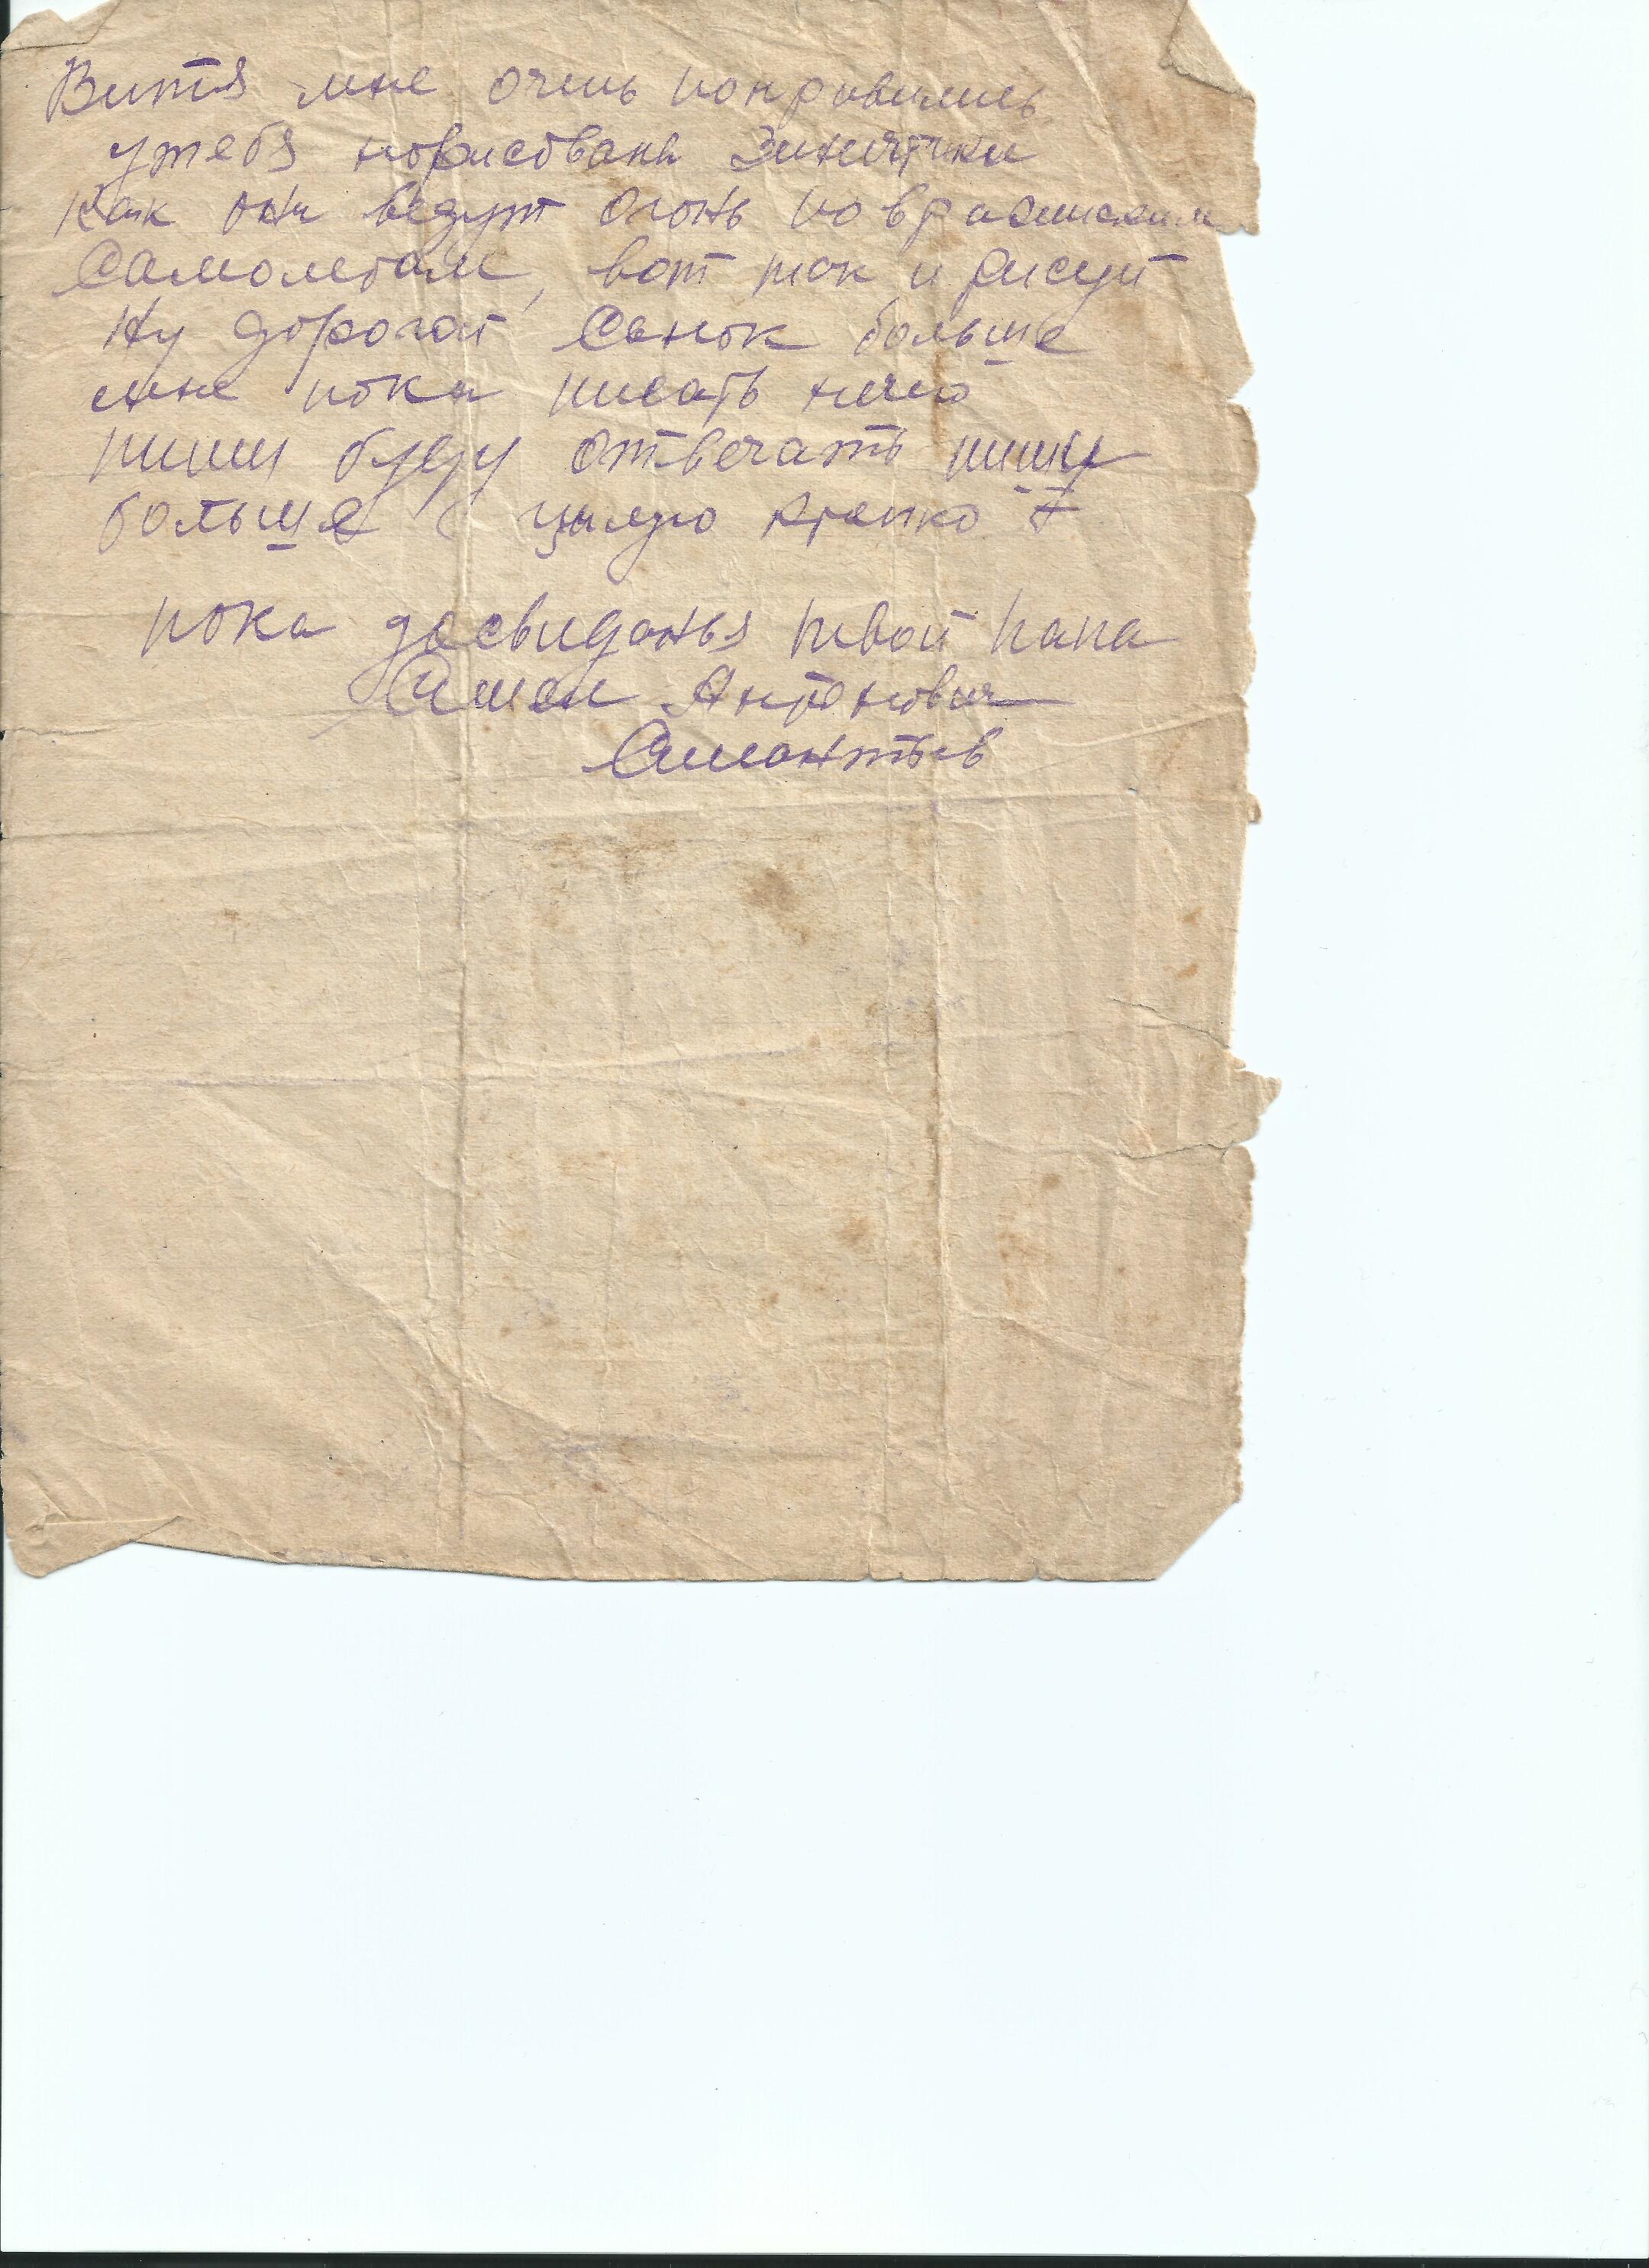 Витя мне очень понравились
у тебя нарисованы Зинитики
Как они ведут огонь по вражиским
Самолетам, вот так и рисуй
Ну дорогой Сынок больше
мне пока писать нечего
пиши буду отвечать пиши
больше цылую крепко
пока досвиданья твой папа
Антонович